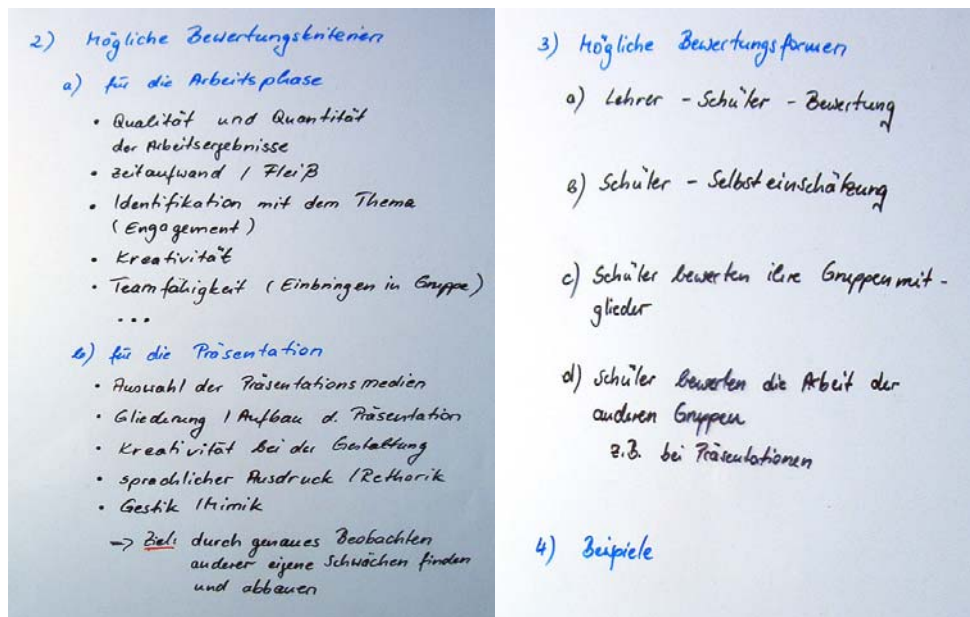 2) Mögliche Bewertungskriterien
a) für die Arbeitsphase
• Qualität und Quantität
der Arbeitsergebnisse
• Zeitaufwand / Fleiß
• Identifikation mit dem Thema
(Engagement)
• Kreativität
• Teamfähigkeit (Einbringen in Gruppe)
...
b) für die Präsentation
• Auswahl der Präsentationsmedien
• Gliederung / Aufbau d. Präsentation
• Kreativität bei der Gestaltung
• sprachlicher Ausdruck / Rethorik
• Gestik / Mimik
–> Ziel: durch genaues Beobachten
anderer eigene Schwächen finden
und abbauen
3) Mögliche Bewertungsformen
a) Lehrer - Schüler - Bewertung
B) Schüler - Selbsteinschätzung
c) Schüler bewerten ihre Gruppenmit-
glieder
d) Schüler bewerten die Arbeit der
anderen Gruppen
z.B. bei Präsentationen
4) Beipiele